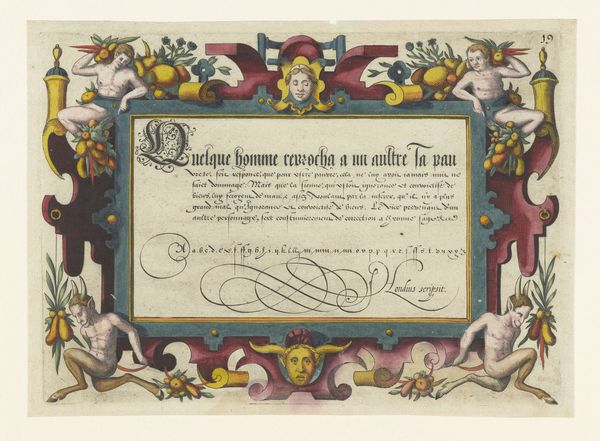 19
Quelque homme reprocha a un aultre sa pau
vrete, soit responce, que pour estre pauvre, cela ne luy avoit iamais nuit ne
faict dommage: Mais que la sienne, qui estoit ignorance et convoictise de
biens, luy feroyent de maulx assez, Voulant par la inferer, qu'il n'y a plus
grand mal, qu'Ignorance et convoictise de biens. Le Vice procedant d'un
aultre personnage, sert coustumierement de correction a l'homme sage. Rien
A a.b.c.d.e.e.f.ff.g.h.i.y.k.l.ll.m.mm.n.nn.o.v.p.p.q.x.r.ſ.ff.s.t.v.u.x.y.z
Hondius scripsit.